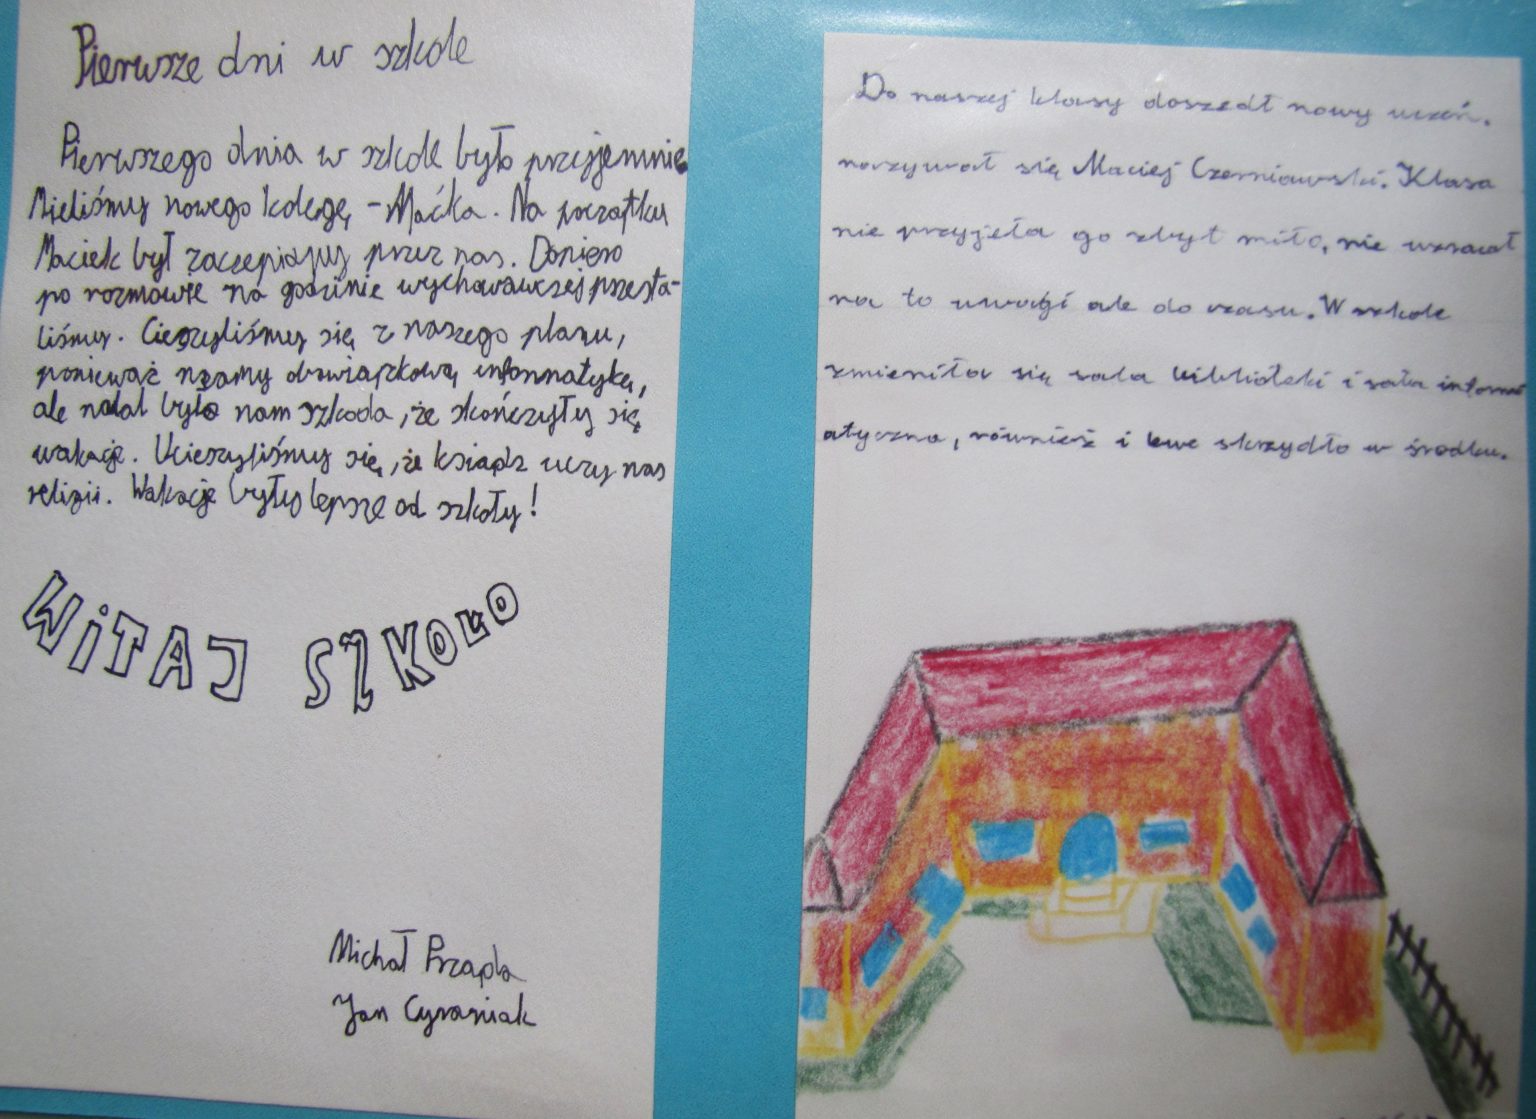 Pierwsze dni w szkole
Pierwszego dnia w szkole było przyjemnie.
Mieliśmy nowego kolegę -Maćka. Na początku
Maciek był zaczepiany przez nas. Dopiero
po rozmowie na godzinie wychowawczej przesta-
liśmy. Cieszyliśmy się z naszego planu,
ponieważ mamy obowiązkową informatykę,
ale nadal było nam szkoda, że skończyły się
wakacje. Ucieszyliśmy się, że ksiądz uczy nas
religii. Wakacje były lepsze od szkoły!
WiTAJ SZKOŁO
Michał Przapla
Jan Cyraniak
Do naszej klasy doszedł nowy uczeń.
nazywał się Maciej Czerniawski. Klasa
nie przyjeła go zbyt miło, nie wzracał
na to uwagi ale do czasu. W szkole
zmieniła się sala biblioteki i sala inform
atyczna, również i skrzydło w środku.